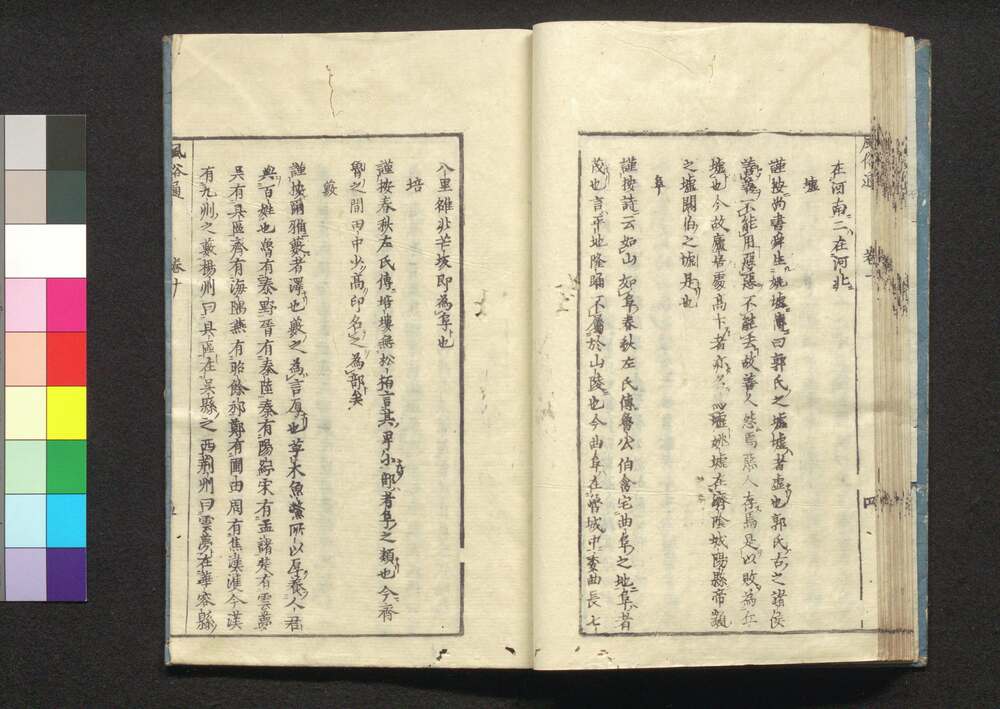 風俗通 卷十 四
在河南二在河北
墟
謹按尚書舜生姚墟傳曰郭氏之墟墟者虚也郭氏古之諸侯
善善不能用惡惡不能去故善人怨焉惡人存焉是以敗為丘
墟也今故廬居處高下者亦名 墟姚墟在濟陰城陽縣帝顓
之墟閼伯之墟是也
阜
謹按詩云如山如阜春秋左氏傳魯公伯禽宅曲阜之地阜者
茂也言平地隆踊不屬於山陵也今曲阜在魯城中委曲長七
八里雒北芒坂即為阜也
培
謹按春秋左氏傳培塿無松栢言其卑小部者阜之類也今齊
魯之間田中少高卬名之為部矣
藪
謹按爾雅藪者澤也藪之為言厚也草木魚鱉所以厚養人君
與百姓也魯有泰野晋有泰陸秦有陽紆宋有孟諸楚有雲夢
吳有具區齊有海隅燕有昭餘祁鄭有圃田周有焦濩淮今漢
有九州之藪揚州曰具區在吳縣之西荆州曰雲夢在華容縣
風俗通 卷十 五